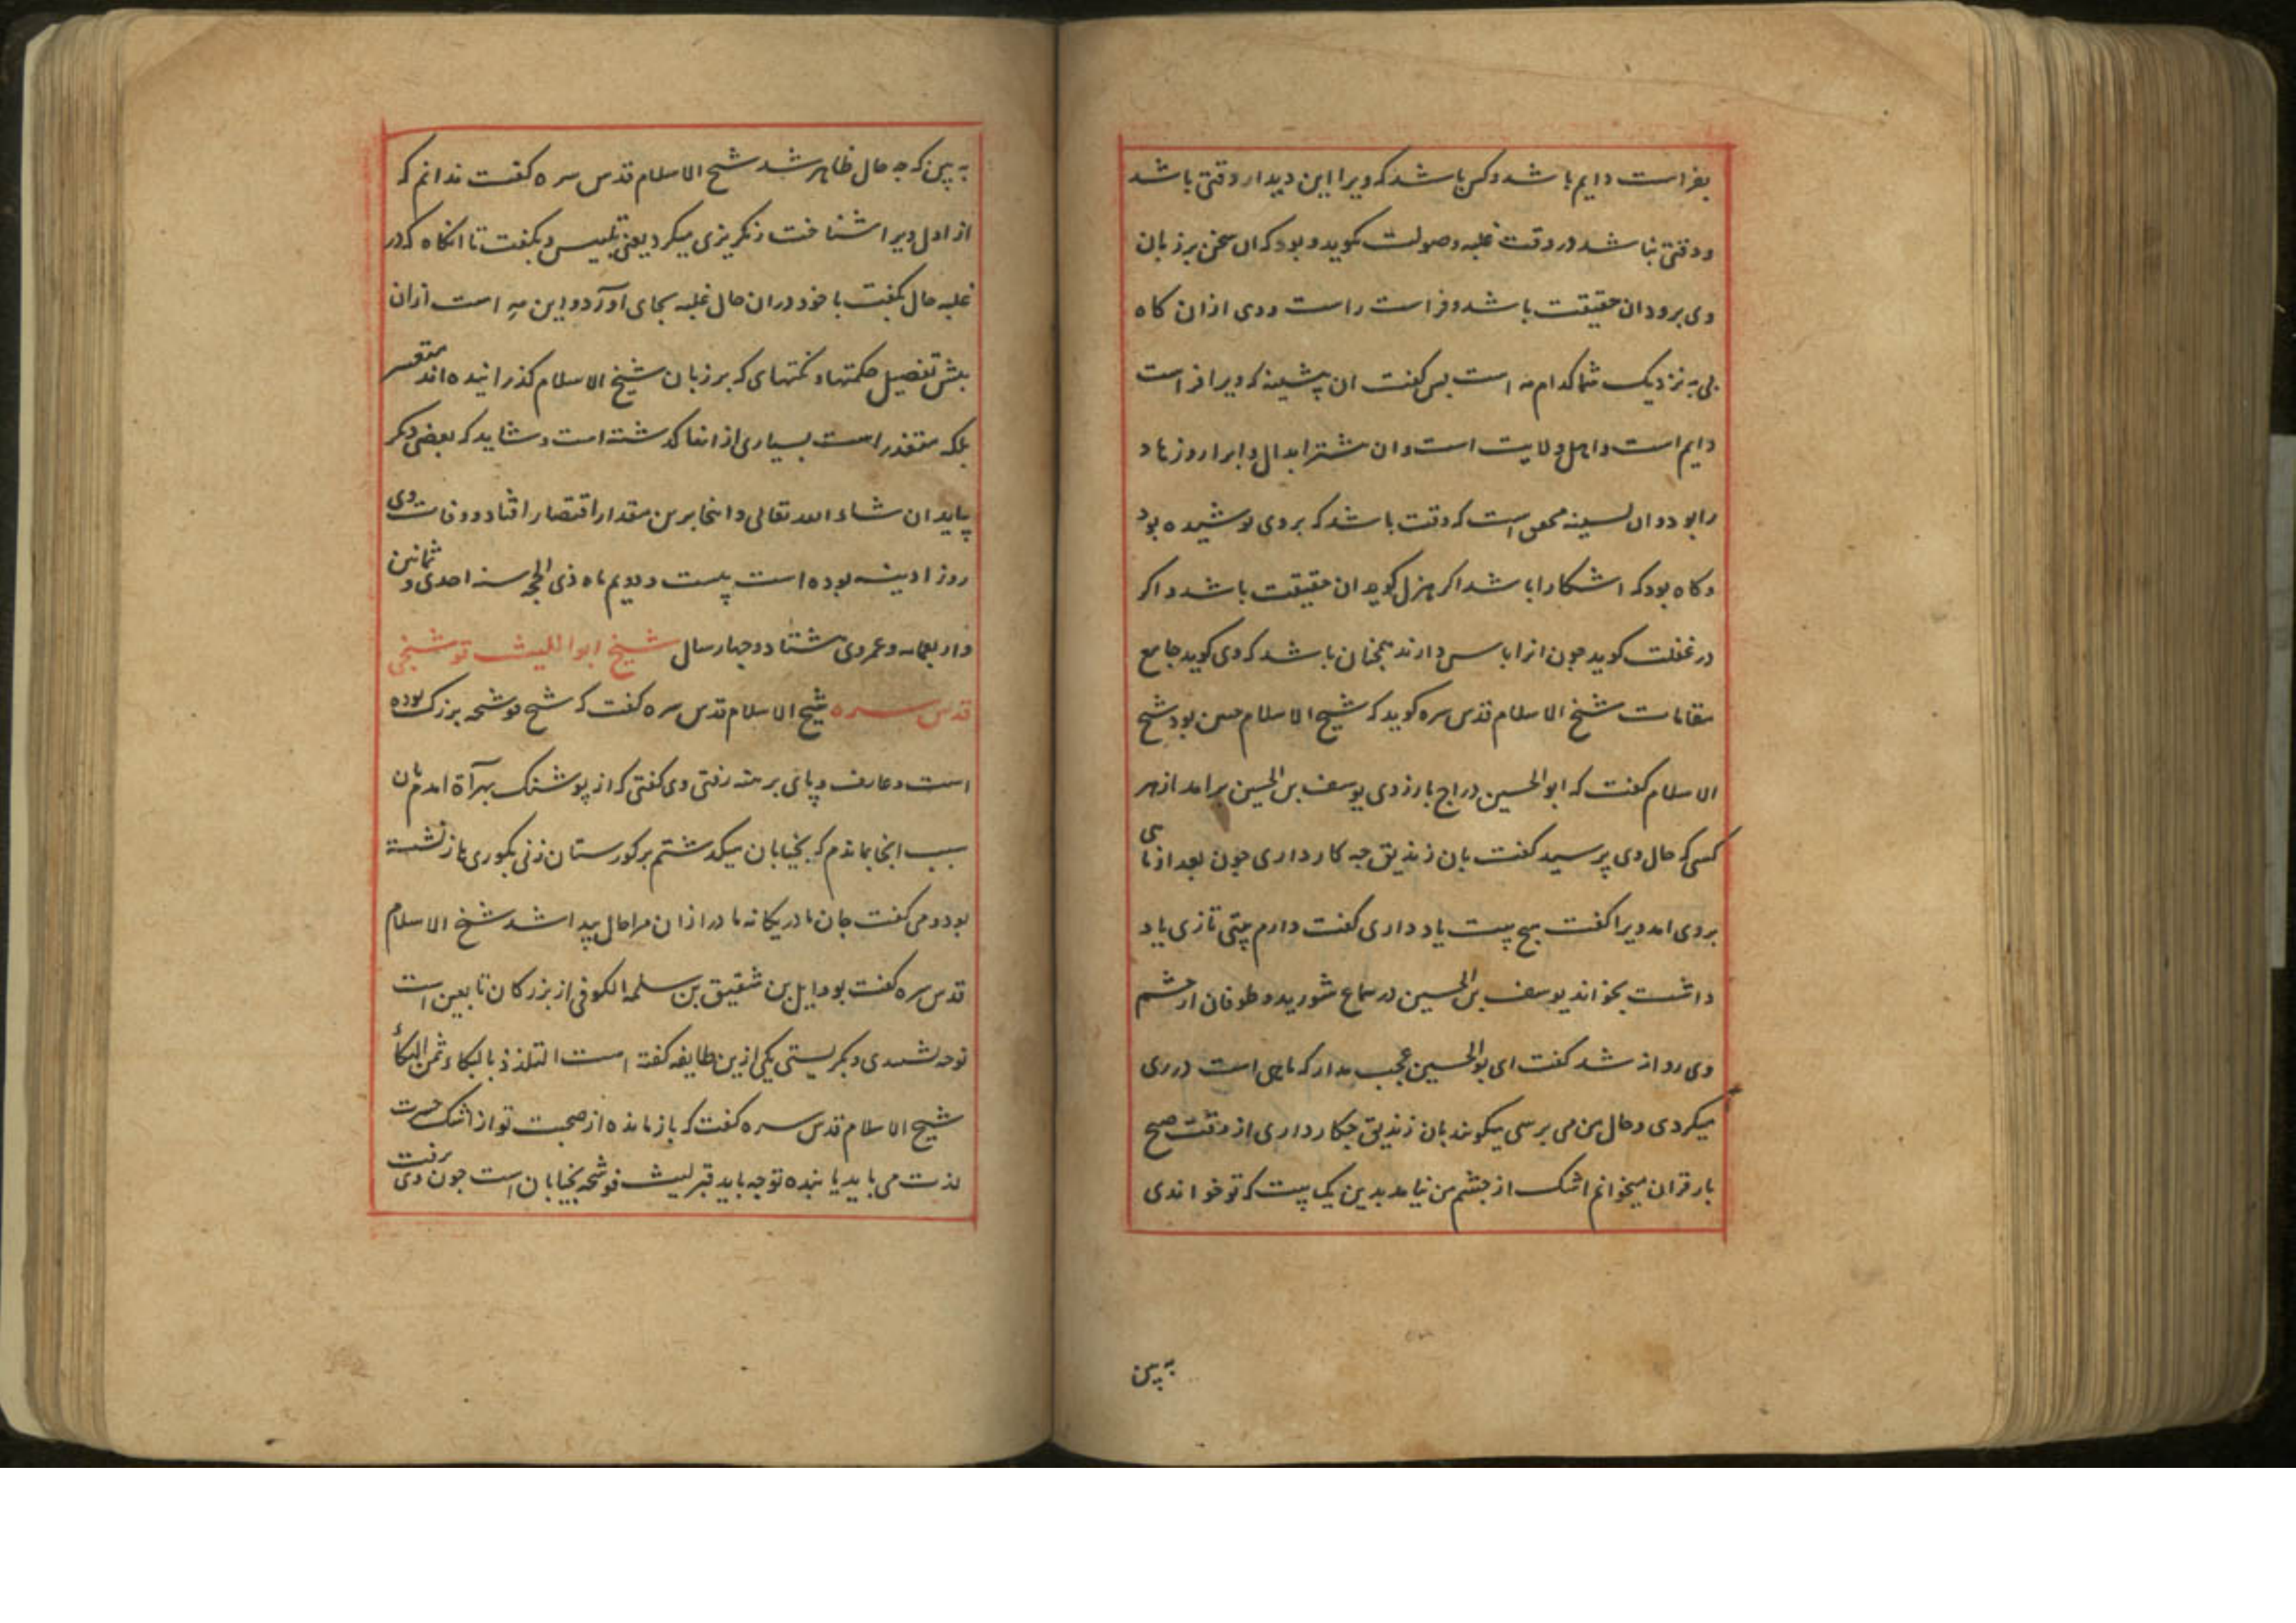 بفراست دایم باشد و کس باشد که ویرا این دیدار وقتی باشد
و وقتی نباشد در وقت غلبه و صولت کوید و بود که ان سخن بر زبان
وی برود ان حقیقت باشد و فراست راست و وی ازان کاه
نی به نزدیک شما کدام مه است بس کفت ان پیشینه که ویرا فراست
دایم است و اهل ولایت است و ان بیشتر ابدال و ابرار و زهاد
را بود و ان بسینه محق است که وقت باشد که بر وی پوشیده بود
و کاه بود که اشکارا باشد اکر بهزل کوید ان حقیقت باشد و اکر
در غفلت کوید جون انرا باس دارند همجنان باشد که وی کوید جامع
مقامات شیخ الاسلام قدس سره کوید که شیخ الاسلام حسن بود شیخ
الاسلام کفت که ابوالحسین دراج بارزوی یوسف بن الحسین برامد از هر
کسی که حال وی پرسید کفت بان زندیق جه کار داری جون بعد از مای
بروی امد ویرا کفت هیج بیت یاد داری کفت دارم بیتی تازی یاد
داشت بخواند یوسف بن الحسین در سماع شورید و طوفان از جشم
وی روانه شد کفت ای بوالحسین عجب مدار که ماهی است در ری
میکردی و حال من می برسی میکویند بان زندیق جکار داری از وقت صبح
باز قران میخوانم اشک از جشم من نیامد بدین یک بیت که تو خواندی
به بین
به بین که جه حال ظاهر شد شیخ الاسلام قدس سره کفت ندانم که
از اول ویرا شناخت رنکریزی میکرد یعنی تلبیس و بکفت تا انکاه که در
غلبه حال بکفت با خود دران حال غلبه بجای اورد و این مه است ازان
بیش تفصیل حکمتها و نکتهای که بر زبان شیخ الاسلام کذرانیده اند متعسر
بلکه متعذر است بسیاری از انها کذشته است و شاید که بعضی دکر
بیاید ان شاء الله تعالی و اینجا برین مقدار اقتصار افتاد و وفات وی
روز ادینه بوده است بیست و دویم ماه ذی الحجه سنه احدی و ثمانین
و اربعمایه و عمر وی هشتاد و جهار سال شیخ ابو اللیث فوشنجی
قدس سره شیخ الاسلام قدس سره کفت که شیخ فوشنجه بزرک بوده
است و عارف و پای برهنه رفتی وی کفتی که از پوشنک بهرآة امدم بان
سبب اینجا بماندم که بخیابان میکذشتم بر کورستان زنی بکوری باز نشسته
بود و می کفت جان مادر یکانه مادر ازان مرا حال پیدا شد شیخ الاسلام
قدس سره کفت بو وایل بن شقیق بن سلمه الکوفی از بزرکان تابعین است
نوحه شنیدی و بکریستی یکی ازین طایفه کفته است التلذذ بالبکاء ثمن البکاء
شیخ الاسلام قدس سره کفت که باز مانده از صحبت تو از اشک حسرت
لذت می یابد یابنده توجه یابد قبر لیث فوشنجه بخیابان است جون وی برفت